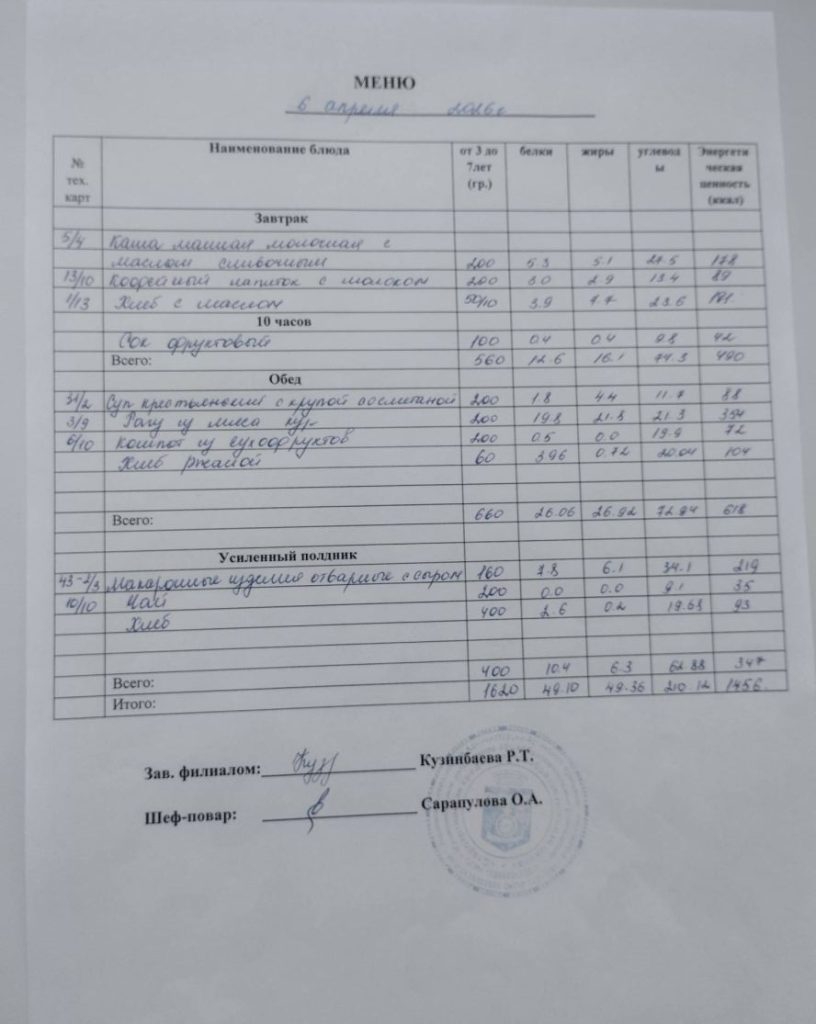 МЕНЮ
6 апреля 2026г
№ тех. карт Наименование блюда от 3 до 7лет (гр.) белки жиры углеводы Энергетическая ценность (ккал)
Завтрак
5/4 Каша манная молочная с
маслом сливочным 200 5.3 5.1 27.5 178
13/10 Кофейный напиток с молоком 200 3.0 2.9 13.4 89
1/13 Хлеб с маслом 50/10 3.9 7.7 23.6 181
10 часов
Сок фруктовый 100 0.4 0.4 9.8 42
Всего: 560 12.6 16.1 74.3 490
Обед
31/2 Суп крестьянский с крупой со сметаной 200 1.8 4.4 11.7 88
3/9 Рагу из мяса кур 200 19.8 21.8 21.3 354
6/10 Компот из сухофруктов 200 0.5 0.0 19.9 72
Хлеб ржаной 60 3.96 0.72 20.04 104
Всего: 660 26.06 26.92 72.94 618
Усиленный полдник
43-2/3 Макаронные изделия отварные с сыром 160 7.8 6.1 34.1 219
10/10 Чай 200 0.0 0.0 9.1 35
Хлеб 400 2.6 0.2 19.68 93
Всего: 400 10.4 6.3 62.88 347
Итого: 1620 49.10 49.36 210.12 1456
Зав. филиалом: Кузинбаева Р.Т.
Шеф-повар: Сарапулова О.А.